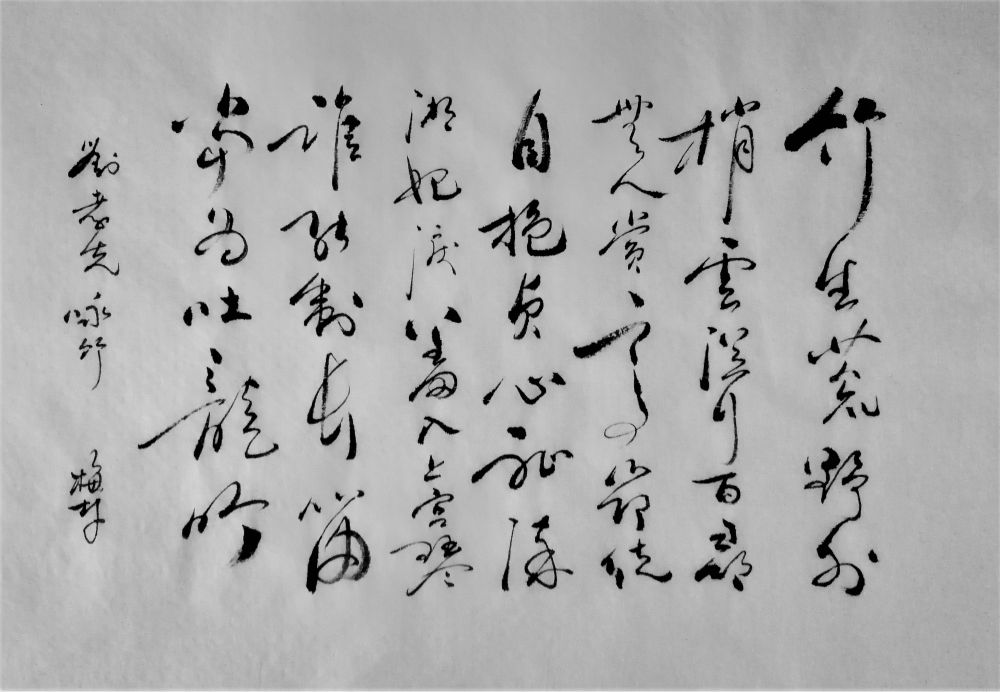 竹生荒野外
梢雲聳百尋
無人賞高節徒
自抱貞心恥染
湘妃淚羞入上宮琴
誰能制長笛
當為吐龍吟
劉孝先咏竹 梅村